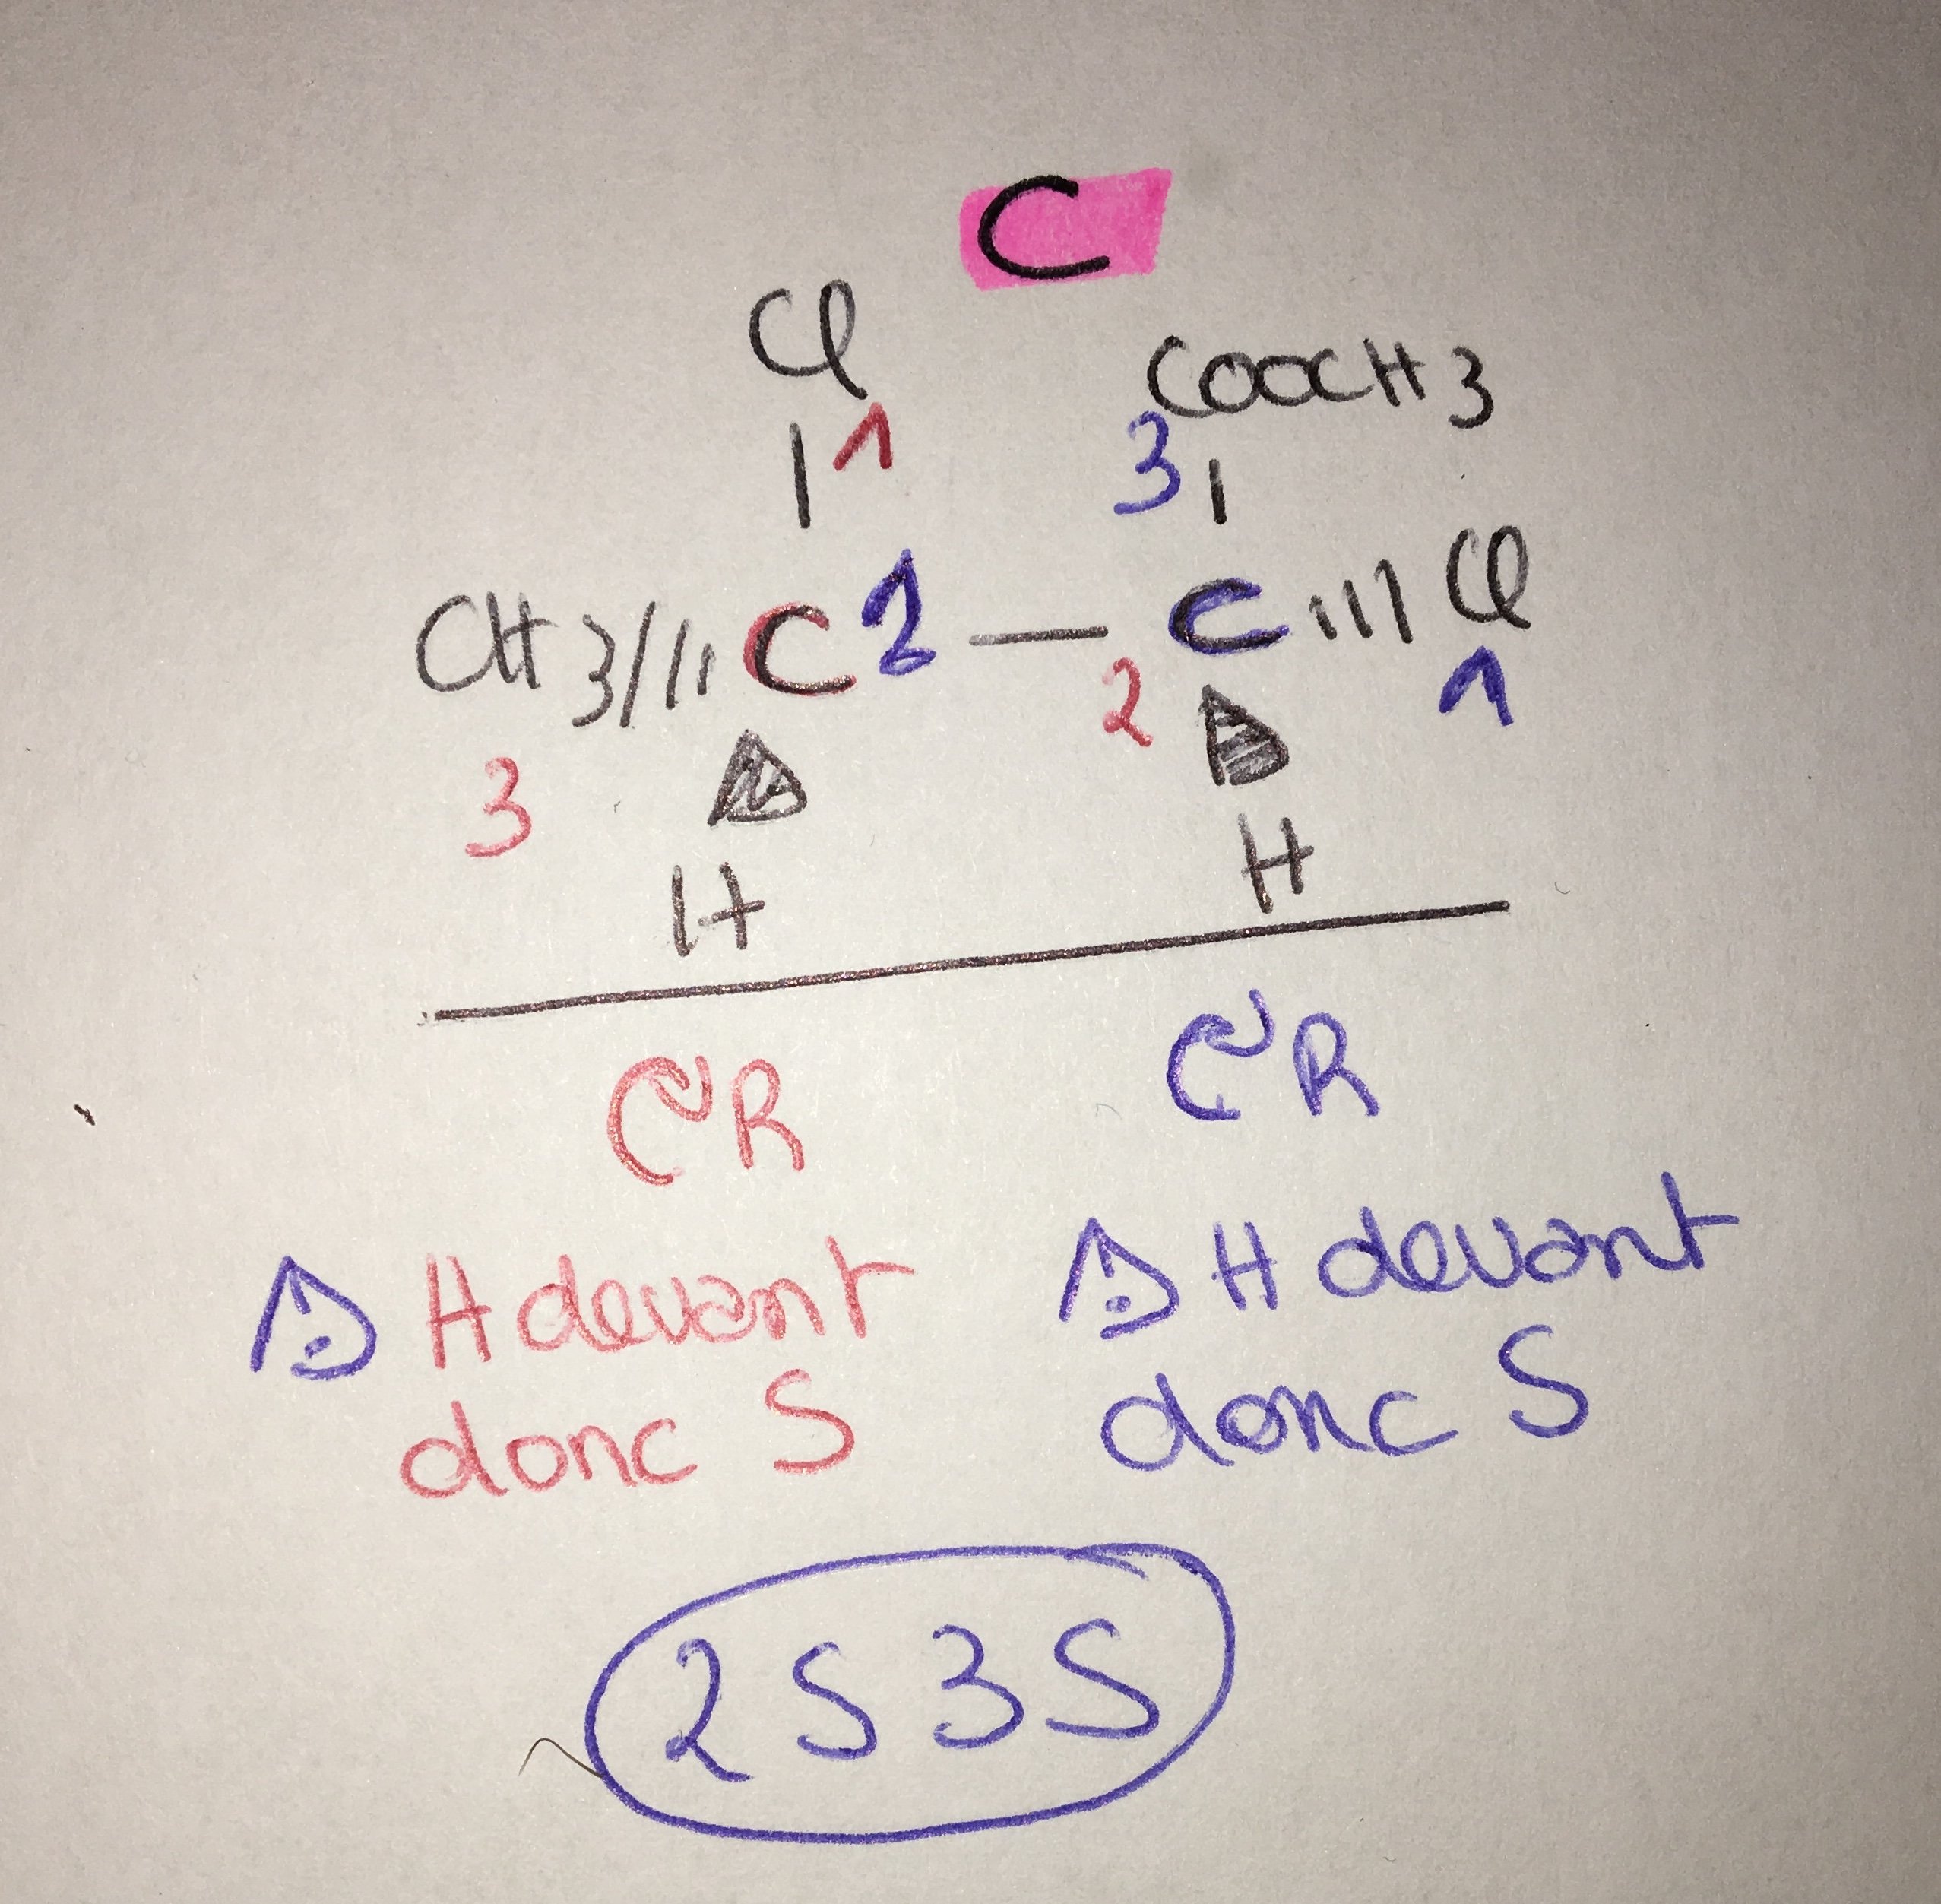 C
Cl COOCH3
1 3
CH3 C 2 C Cl
3 2 1
H H
R R
H devant H devant
donc S donc S
2S3S